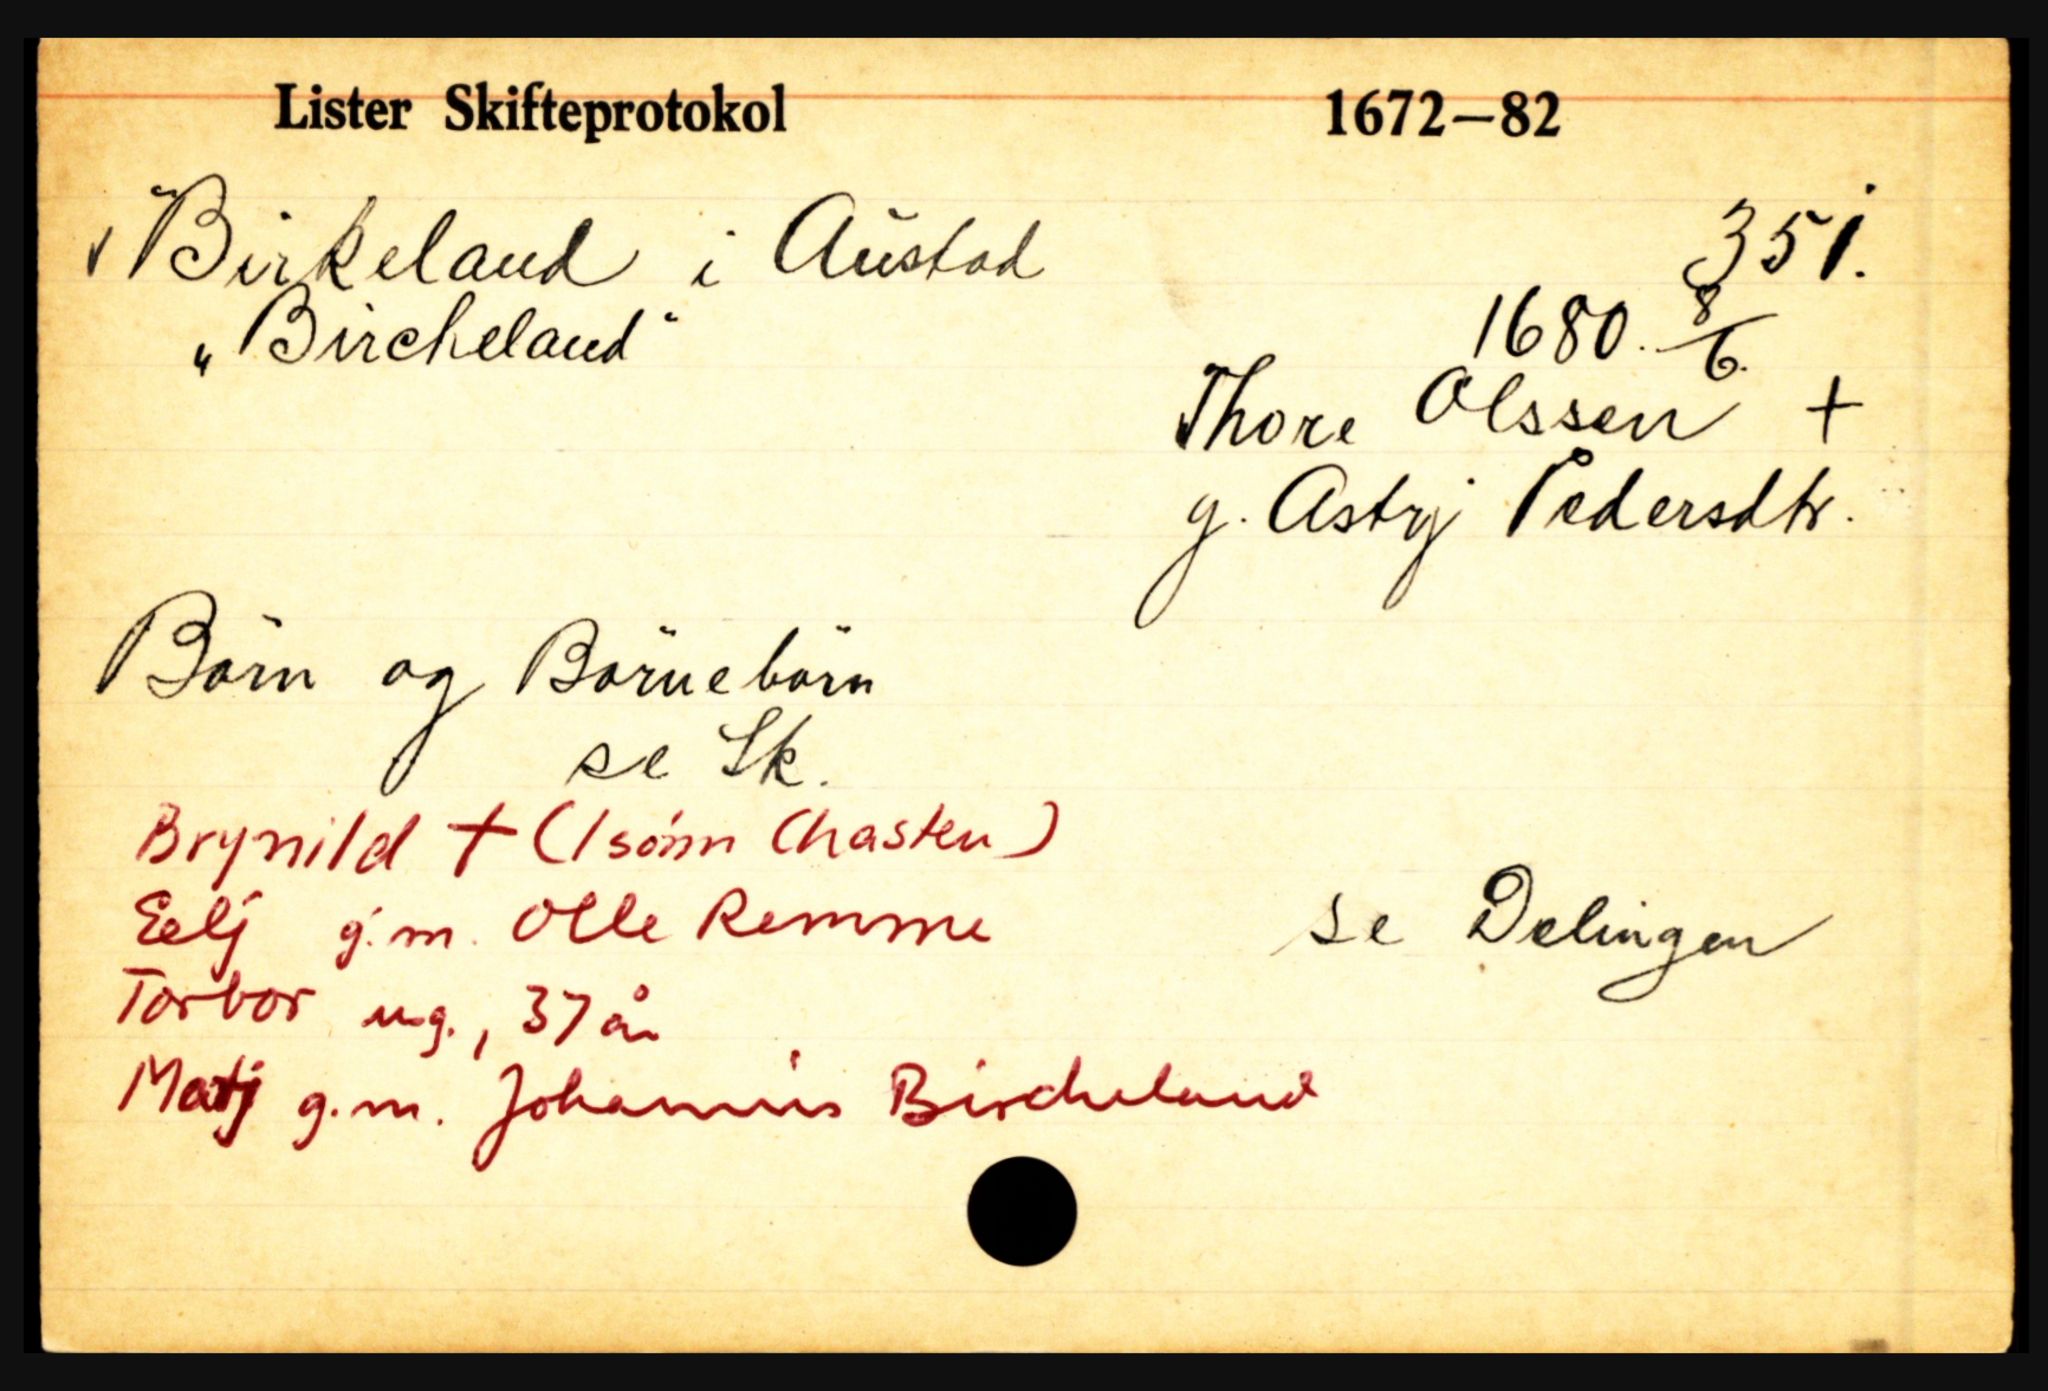 Lister Skifteprotokol 1672—82
Birkeland i Austad 351.
„Bircheland“ 1680. 8/6.
Thore Olssen +
g. Astrj Pedersdtr.
Börn og Börnebörn
se Sk.
Brynild + (1 sönn Chasten)
Eelj g.m. Olle Remme se Delingen
Torbor ug., 37 år
Matj g.m. Johannis Bircheland